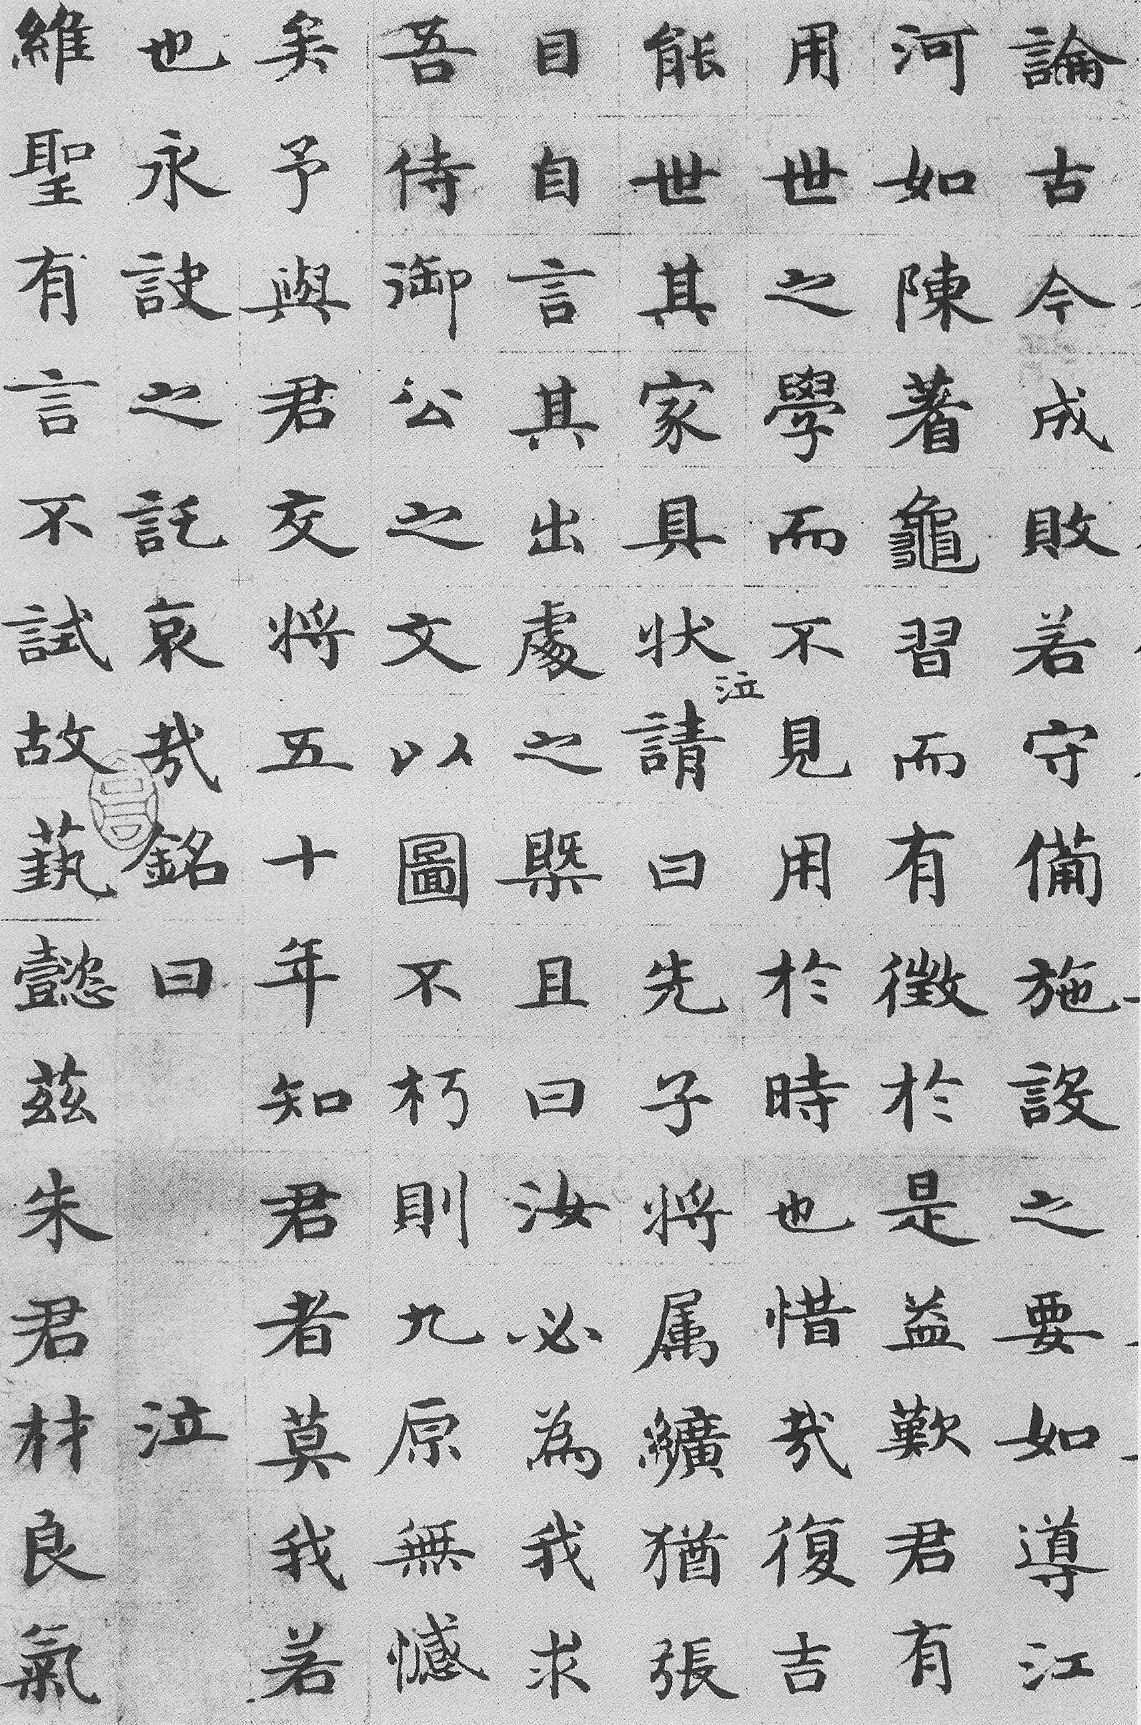 論古今成敗若守備施設之要如導江
河如陳蓍龜習而有徵於是益歎君有
用世之學而不見用於時也惜哉復吉
能世其家具狀泣請曰先子將属纊猶張
目自言其出處之槩且曰汝必為我求
吾侍御公之文以圖不朽則九原無憾
矣予與君交將五十年知君者莫我若
也永訣之託哀哉銘曰 泣
維聖有言不試故藝懿茲朱君材良氣